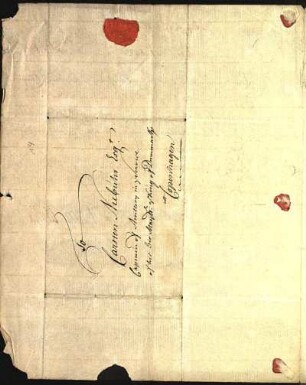 To
Carsten Niebuhr Esqr.
Captain of Artillery in ye Service
of his Majesty ye King of Denmark
Copenhagen